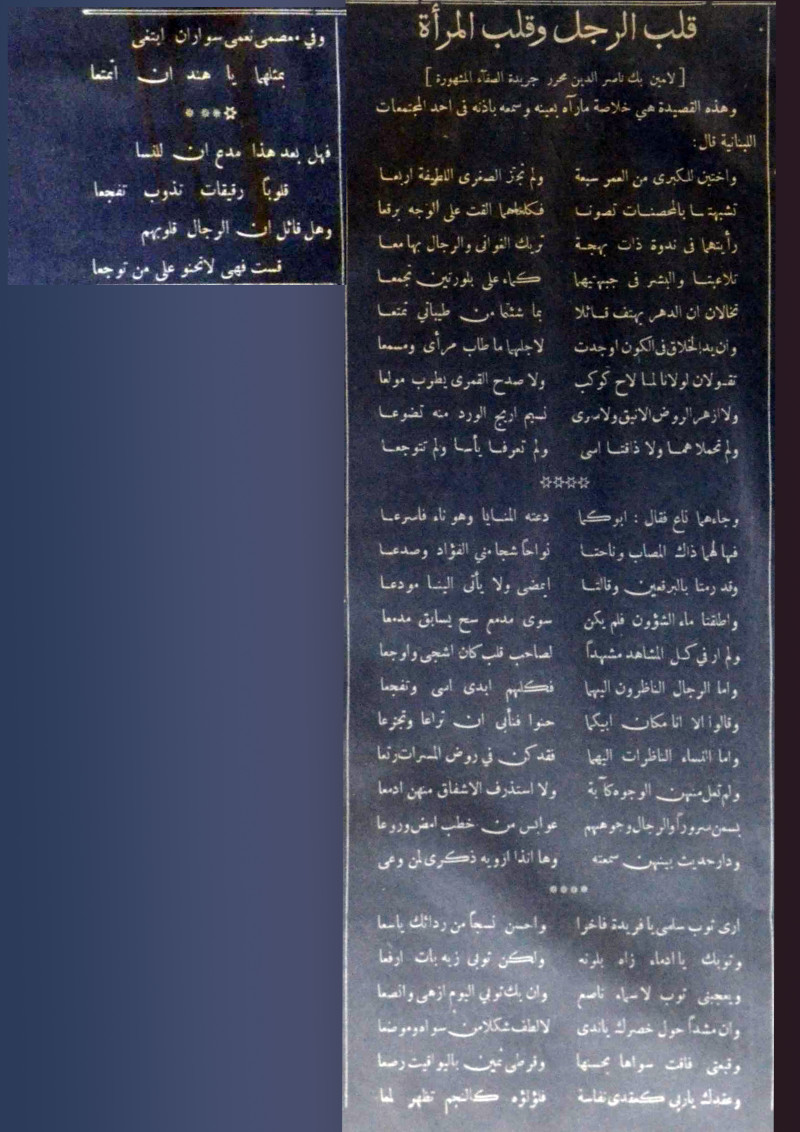 قلب الرجل وقلب المرأة
[ لامين بك ناصر الدين محرر جريدة الصفآء المشهورة ]
وهذه القصيدة هي خلاصة مارآه بعينه وسمعه باذنه فى احد المجتمعات
اللبنانية قال:
واختين للكبرى من العمر سبعة ولم تجز الصغرى اللطيفة اربعا
تشبهتا بالمحصنات تصونا فكلتاهما القت على الوجه برقعا
رأيتهما فى ندوة ذات بهجة تريك الغوانى والرجال بها معا
تلاعبتا والبشر فى جبهتيهما كماء على بلورتين تجمعا
تخالان ان الدهر يهتف قائلا بما شئتما من طيباتي تمتعا
وان يد الخلاق فى الكون اوجدت لاجلهما ما طاب مرأى ومسمعا
تقولان لولانا لما لاح كوكب ولا صدح القمرى يطرب مولعا
ولا ازهر الروض الانيق ولا سرى نسيم اريج الورد منه تضوعا
ولم تحملا هما ولا ذاقتا اسى ولم تعرفا يأسا ولم تتوجعا
☆☆☆☆
وجاءهما ناع فقال : ابوكما دعته المنايا وهو ناء فاسرعا
فهالهما ذاك المصاب وناحتا نواحًا شجا مني الفؤاد وصدعا
وقد رمتا بالبرقعين وقالتا ايمضى ولا يأتى الينا مودعا
واطلقتا ماء الشؤون فلم يكن سوى مدمع سح يسابق مدمعا
ولم ار في كل المشاهد مشهداً لصاحب قلب كان اشجى واوجعا
واما الرجال الناظرون اليهما فكلهم ابدى اسى وتفجعا
وقالوا الا انا مكان ابيكما حنوا فنأبى ان تراعا وتجزعا
واما النساء الناظرات اليهما فقد كن في روض المسرات رتعا
ولم تعل منهن الوجوه كآبة ولا استذرف الاشفاق منهن ادمعا
يسمن سروراً والرجال وجوههم عوابس من خطب امض وروعا
ودار حديث بينهن سمعته وها انذا ارويه ذكرى لمن وعى
****
ارى ثوب سلمى يا فريدة فاخرا واحسن نسجاً من ردائك ياسعا
وثوبك يا ادماء زاه بلونه ولكن ثوبى زيه بات ارفعا
ويعجبنى ثوب لاسماء ناصع وان يك ثوبي اليوم ازهى وانصعا
وان مشداً حول خصرك ياندى لالطف شكلا من سواه وموضعا
وقبعتى فاقت سواها بحسنها وقرطى ثمين باليواقيت رصعا
وعقدك ياربى كعقدى نفاسة فلؤلؤه كالنجم تظهر لمعا
وفي معصمى نعمى سواران ابتغى
بمثلهما يا هند ان اتمتعا
☆***
فهل بعد هذا مدع ان للنسا
قلوباً رقيقات تذوب تفجعا
وهل قائل ان الرجال قلوبهم
قست فهى لا تحنو على من توجعا